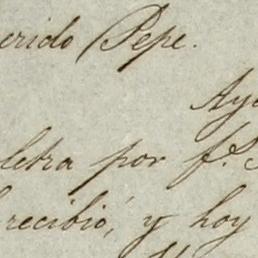 erido Pepe.
Aye
letra por f. S
recibió, y hoy